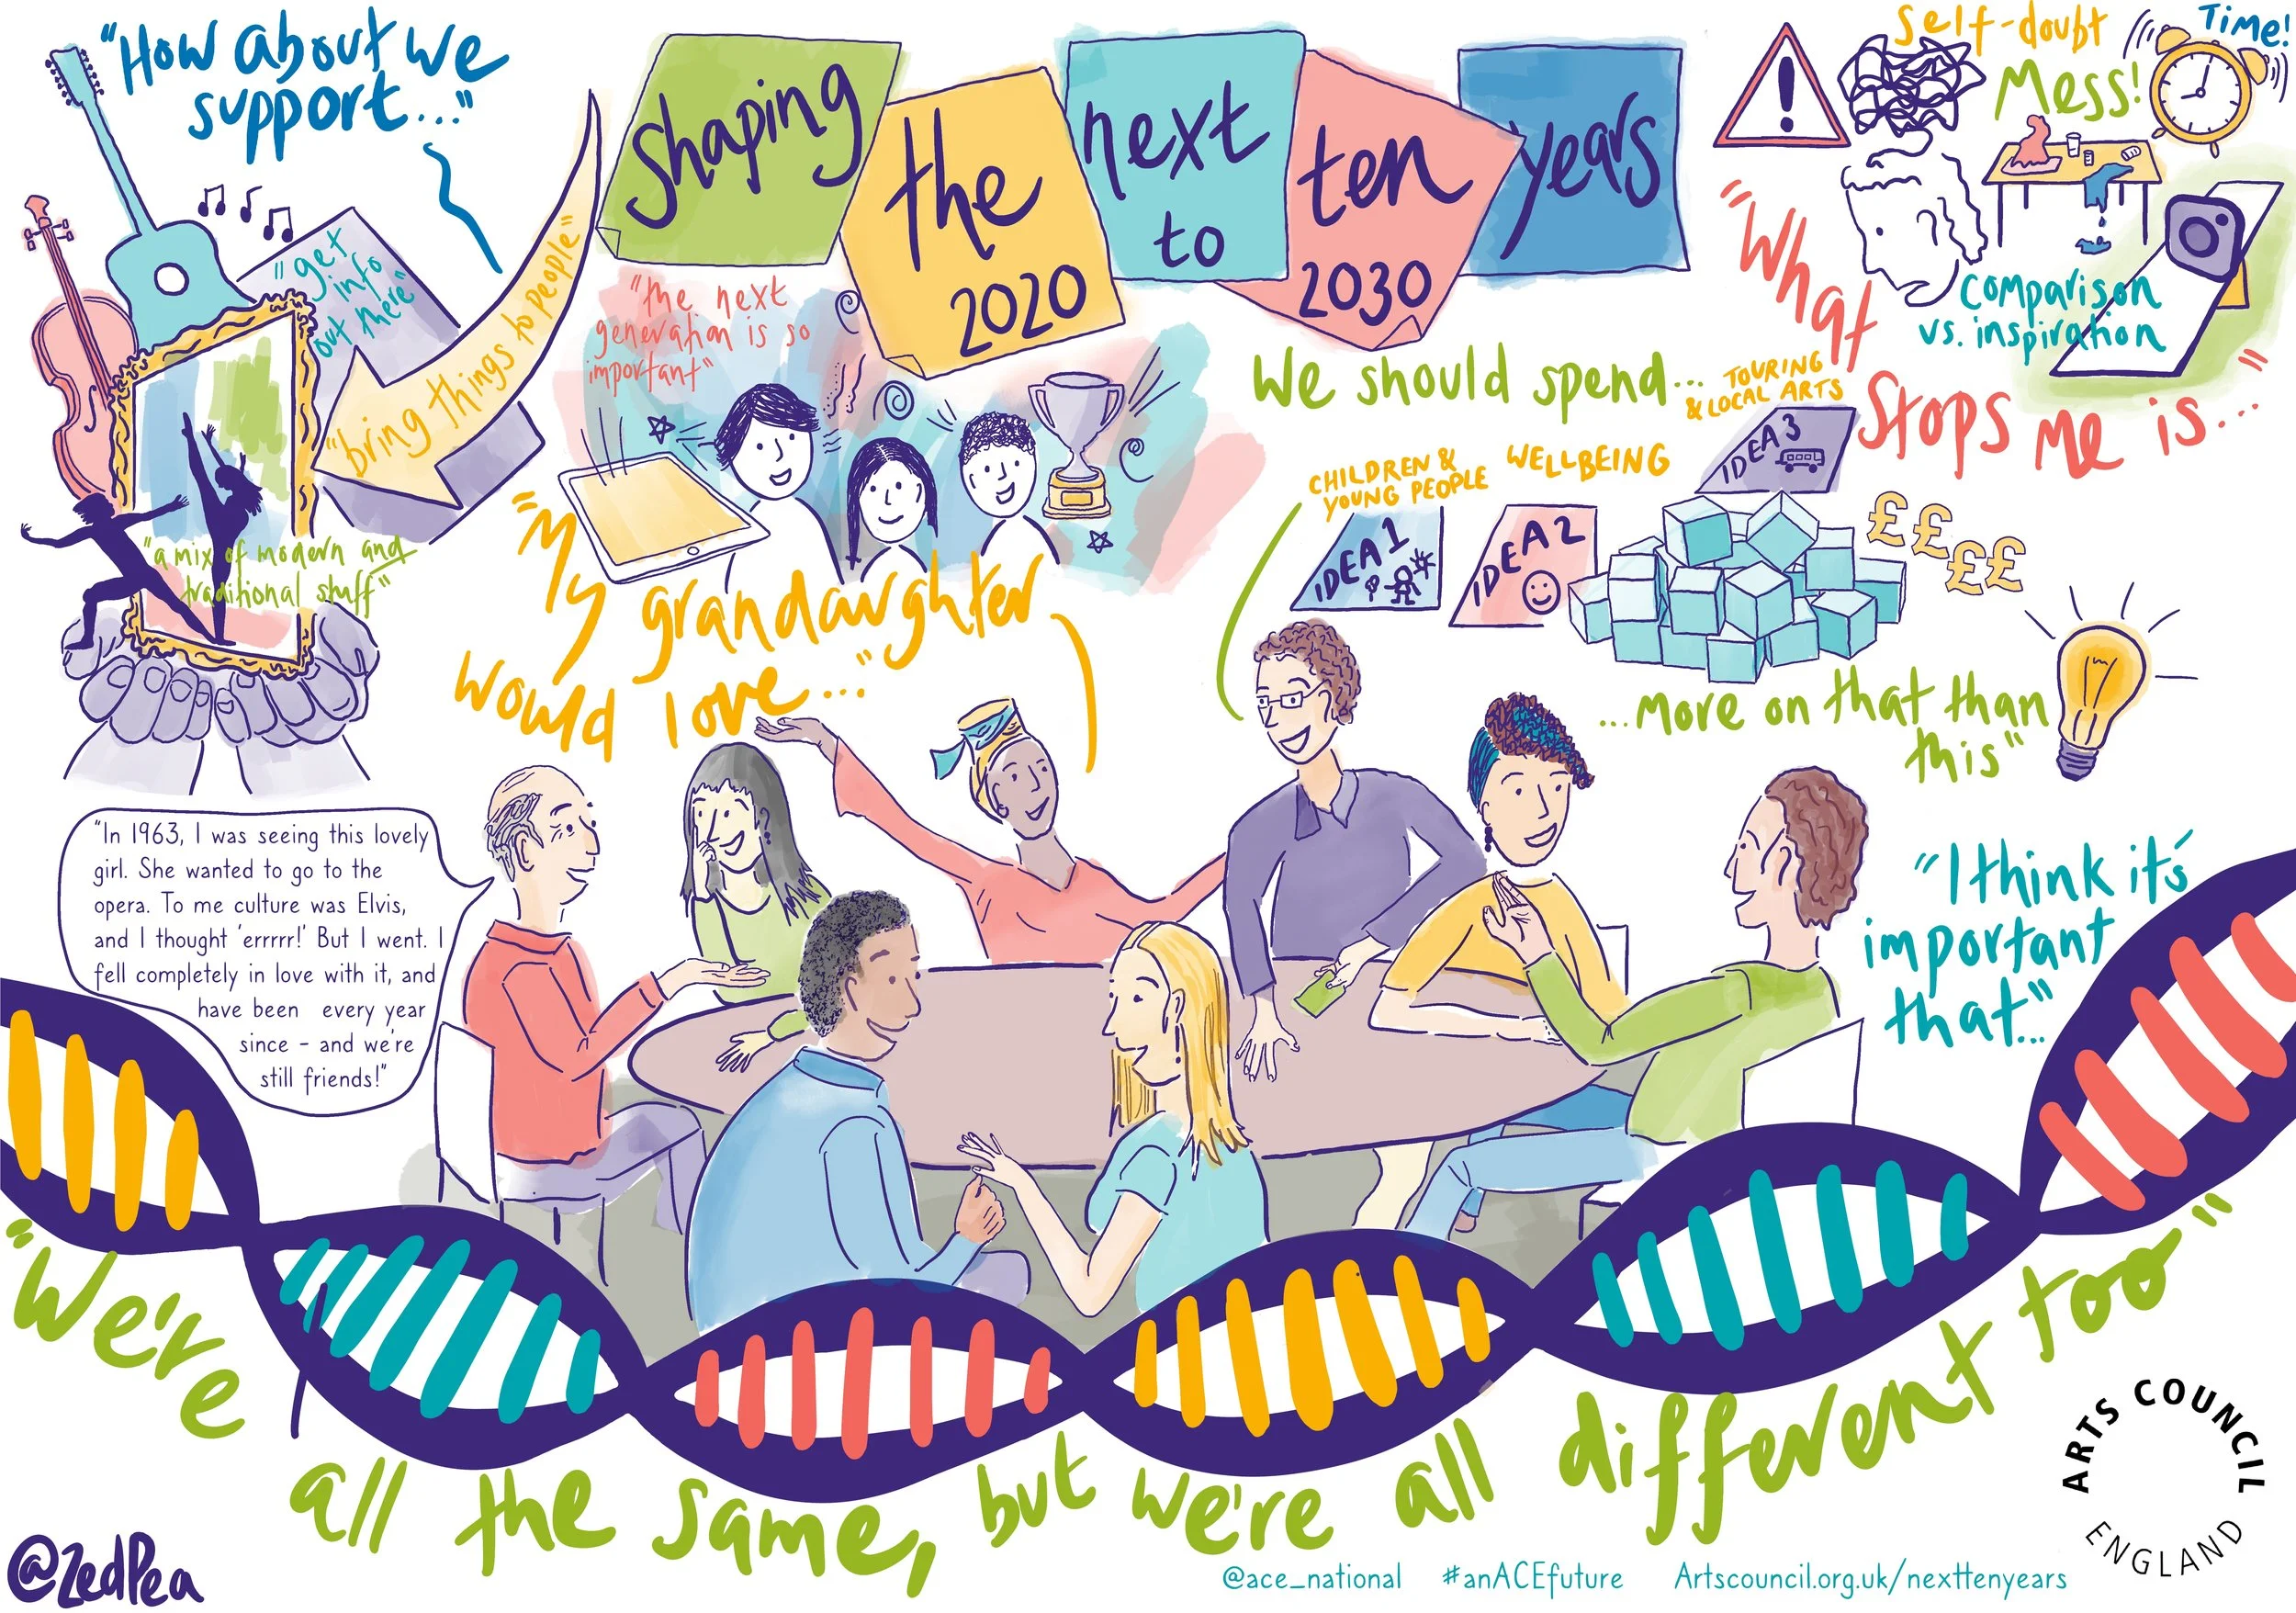 "How about we
support..."
shaping
the
next
ten
years
2020
to
2030
"get
info
out there"
"bring things to people"
"a mix of modern and
traditional stuff"
"the next
generation is so
important"
"My grandaughter
would love..."
We should spend...
CHILDREN &
YOUNG PEOPLE
WELLBEING
TOURING
& LOCAL ARTS
IDEA 1
IDEA 2
IDEA 3
££££
...more on that than
this"
Self-doubt
Mess!
Time!
Comparison
vs. inspiration
"What
Stops me is..."
"In 1963, I was seeing this lovely
girl. She wanted to go to the
opera. To me culture was Elvis,
and I thought 'errrrr!' But I went. I
fell completely in love with it, and
have been every year
since - and we're
still friends!"
"I think it's
important
that..."
"We're all the same, but we're all different too"
@ZedPea
@ace_national #anACEfuture Artscouncil.org.uk/nexttenyears
ARTS COUNCIL
ENGLAND